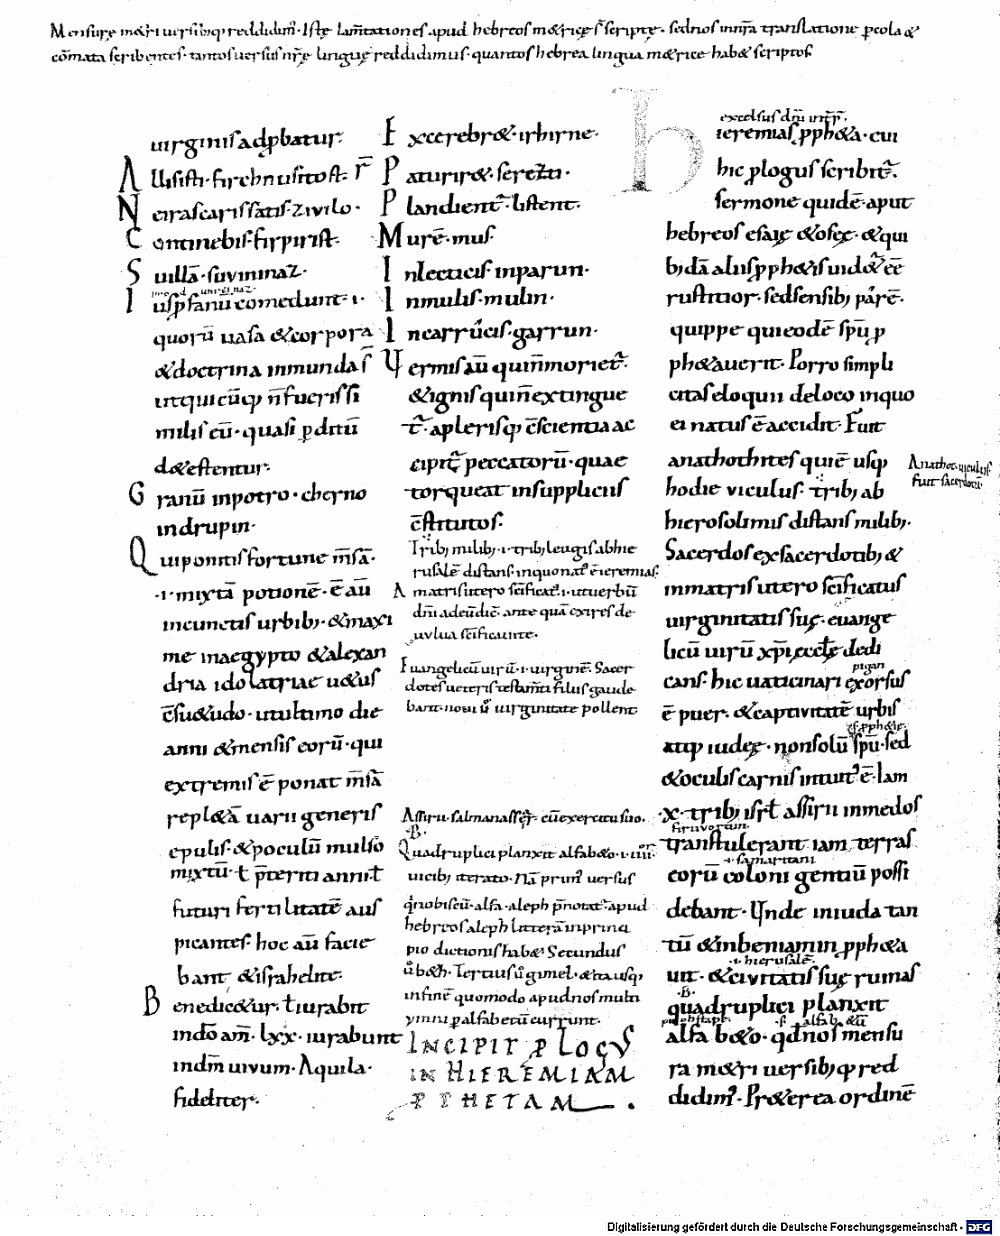 Mensurę m&ri uersibusq; reddidim᷒. Istę lam̄tationes apud hebreos m&ricęs̄ scriptę. sed nos in nr̄a translatione p cola &
cōmata scribentes. tantos uersus nr̄ę linguę reddidimus. quantos hebrea lingua m&rice hab& scriptos
uirginis adp̱batur.
Allisisti. firchnusitost. r̄
Neirascaris satis. zivilo.
Continebis. firpirist.
Suillā. suvininaz.
Iusp̱fanū comedunt. i.
quorū uasa & corpora
& doctrina inmunda s̄
ut quicūq; n̄ fueris si
milis eū. quasi p ditū
d&estentur.
Granū inpotro. cherno
indrupin.
Qui ponitis fortunę m̄sā.
.i. mixtā potionē. ē aū
in cunctis urbib; & maxi
me in aegypto & alexan
dria idolatriae u&us
c̄su&udo. ut ultimo die
anni & mensis eorū. qui
extremis ē ponat m̄sā
repl&ā uarii generis
epulis. & poculū mulso
mixtū. ł p̄teriti anni ł
futuri fertilitatē aus
picantes. hoc aū facie
bant & israhelite.
Benedic&ur. ł iurabit
in dō am̄. lxx. iurabunt
in dm̄ uiuum. Aquila.
fideliter.
Excerebr&. irhirne.
Paturir&. serezti.
Plandient᷒. listent.
Murē. mus.
In lecticis. inparun.
In mulis. mulin.
In carrucis. garrun.
Vermis aū qui n̄ moriet᷒.
& ignis qui n̄ extingue
t᷒. a plerisq; c̄scientia ac
cipit᷒ peccatorū. quae
torqueat in suppliciis
c̄stitutos.
Trib; milib;. i. trib; leugis ab hie
rusalē distans. in quo nat᷒ ē ieremias.
A matris utero sc̄ificat᷒. i. ut uerbū
dn̄i ad eū dic̄. ante quā exires de
uulua sc̄ificaui te.
Euangelicū uirū. i. uirginē. Sacer
dotes ueteris testam̄ti filiis gaude
bant. noui u᷒ uirginitate pollent
Assirii. salmanasser. cū exercitu suo.
.B.
Quadruplici planxit alfab&o. i. iiii.
uicib; iterato. Nā prim᷒ uersus
q̇ nobiscū. alfa. aleph p̄notat᷒. apud
hebreos aleph litterā in princi
pio dictionis hab&. Secundus
u᷒ b&h. Tertius u᷒ gimel. & ita usq;
in finē quomodo apud nos multi
ymni p alfab&ū currunt.
INCIPIT PLOGUS
IN HIEREMIAM
PPHETAM
excelsus dn̄i
hieremias p̱ph&a. cui
hic p̱logus scribit᷒.
sermone quidē aput
hebreos esaię & osęę. & qui
b;dā aliis p̱ph&is uid&᷒ ēē
rusticior. sed sensib; parē.
quippe qui eodē sp̄u p̱
ph&auerit. Porro simpli
citas eloquii de loco in quo
ei natus ē accidit. Fuit
anathothites qui ē usq;
hodie viculus. trib; ab
hierosolimis distans milib;.
Sacerdos ex sacerdotib; &
in matris utero sc̄ificatus
uirginitatis suę. euange
licū uirū xp̄i ęccłę dedi
cans. hic uaticinari exorsus
ē puer. & captivitatē urbis
atq; iudeę. non solū sp̄u. sed
& oculis carnis intuit᷒ ē. Iam
.x. trib; isrł assirii in medos
transtulerant. iam terras
.i. samaritani
eorū coloni gentiū possi
debant. Unde in iuda tan
tū & in beniamin p̱ph&a
.i. hierusalē.
uit. & civitatis suę ruinas
.B.
quadruplici planxit
alfab&o. qd nos mensu
ra m&ri uersib;q; red
didim᷒. Pr&erea ordinē
Anathot. viculus
fuit sacerdotū.